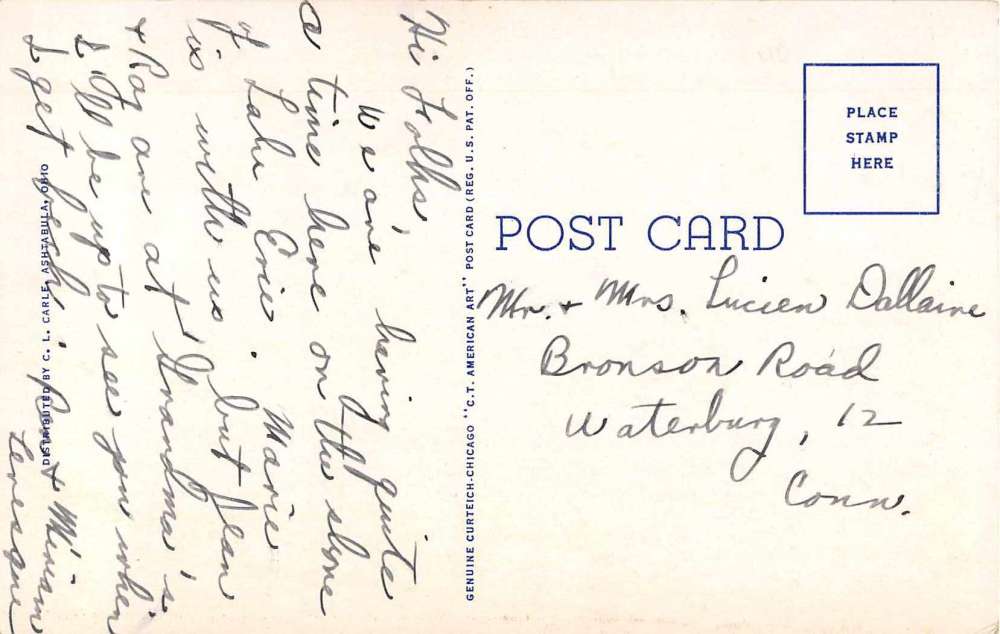 Hi Folks,
We are having quite
a time here on the shore
of Lake Erie. Marie
is with us, but Jean
+ Ray are at Grandma's
I'll be up to see you when
I get back.
+ Miriam
Levesque
DISTRIBUTED BY C. L. CARLE, ASHTABULA, OHIO
GENUINE CURTEICH-CHICAGO "C.T. AMERICAN ART" POST CARD (REG. U.S. PAT. OFF.)
PLACE
STAMP
HERE
POST CARD
Mr. + Mrs. Lucien Dallaire
Bronson Road
Waterbury, 12
Conn.